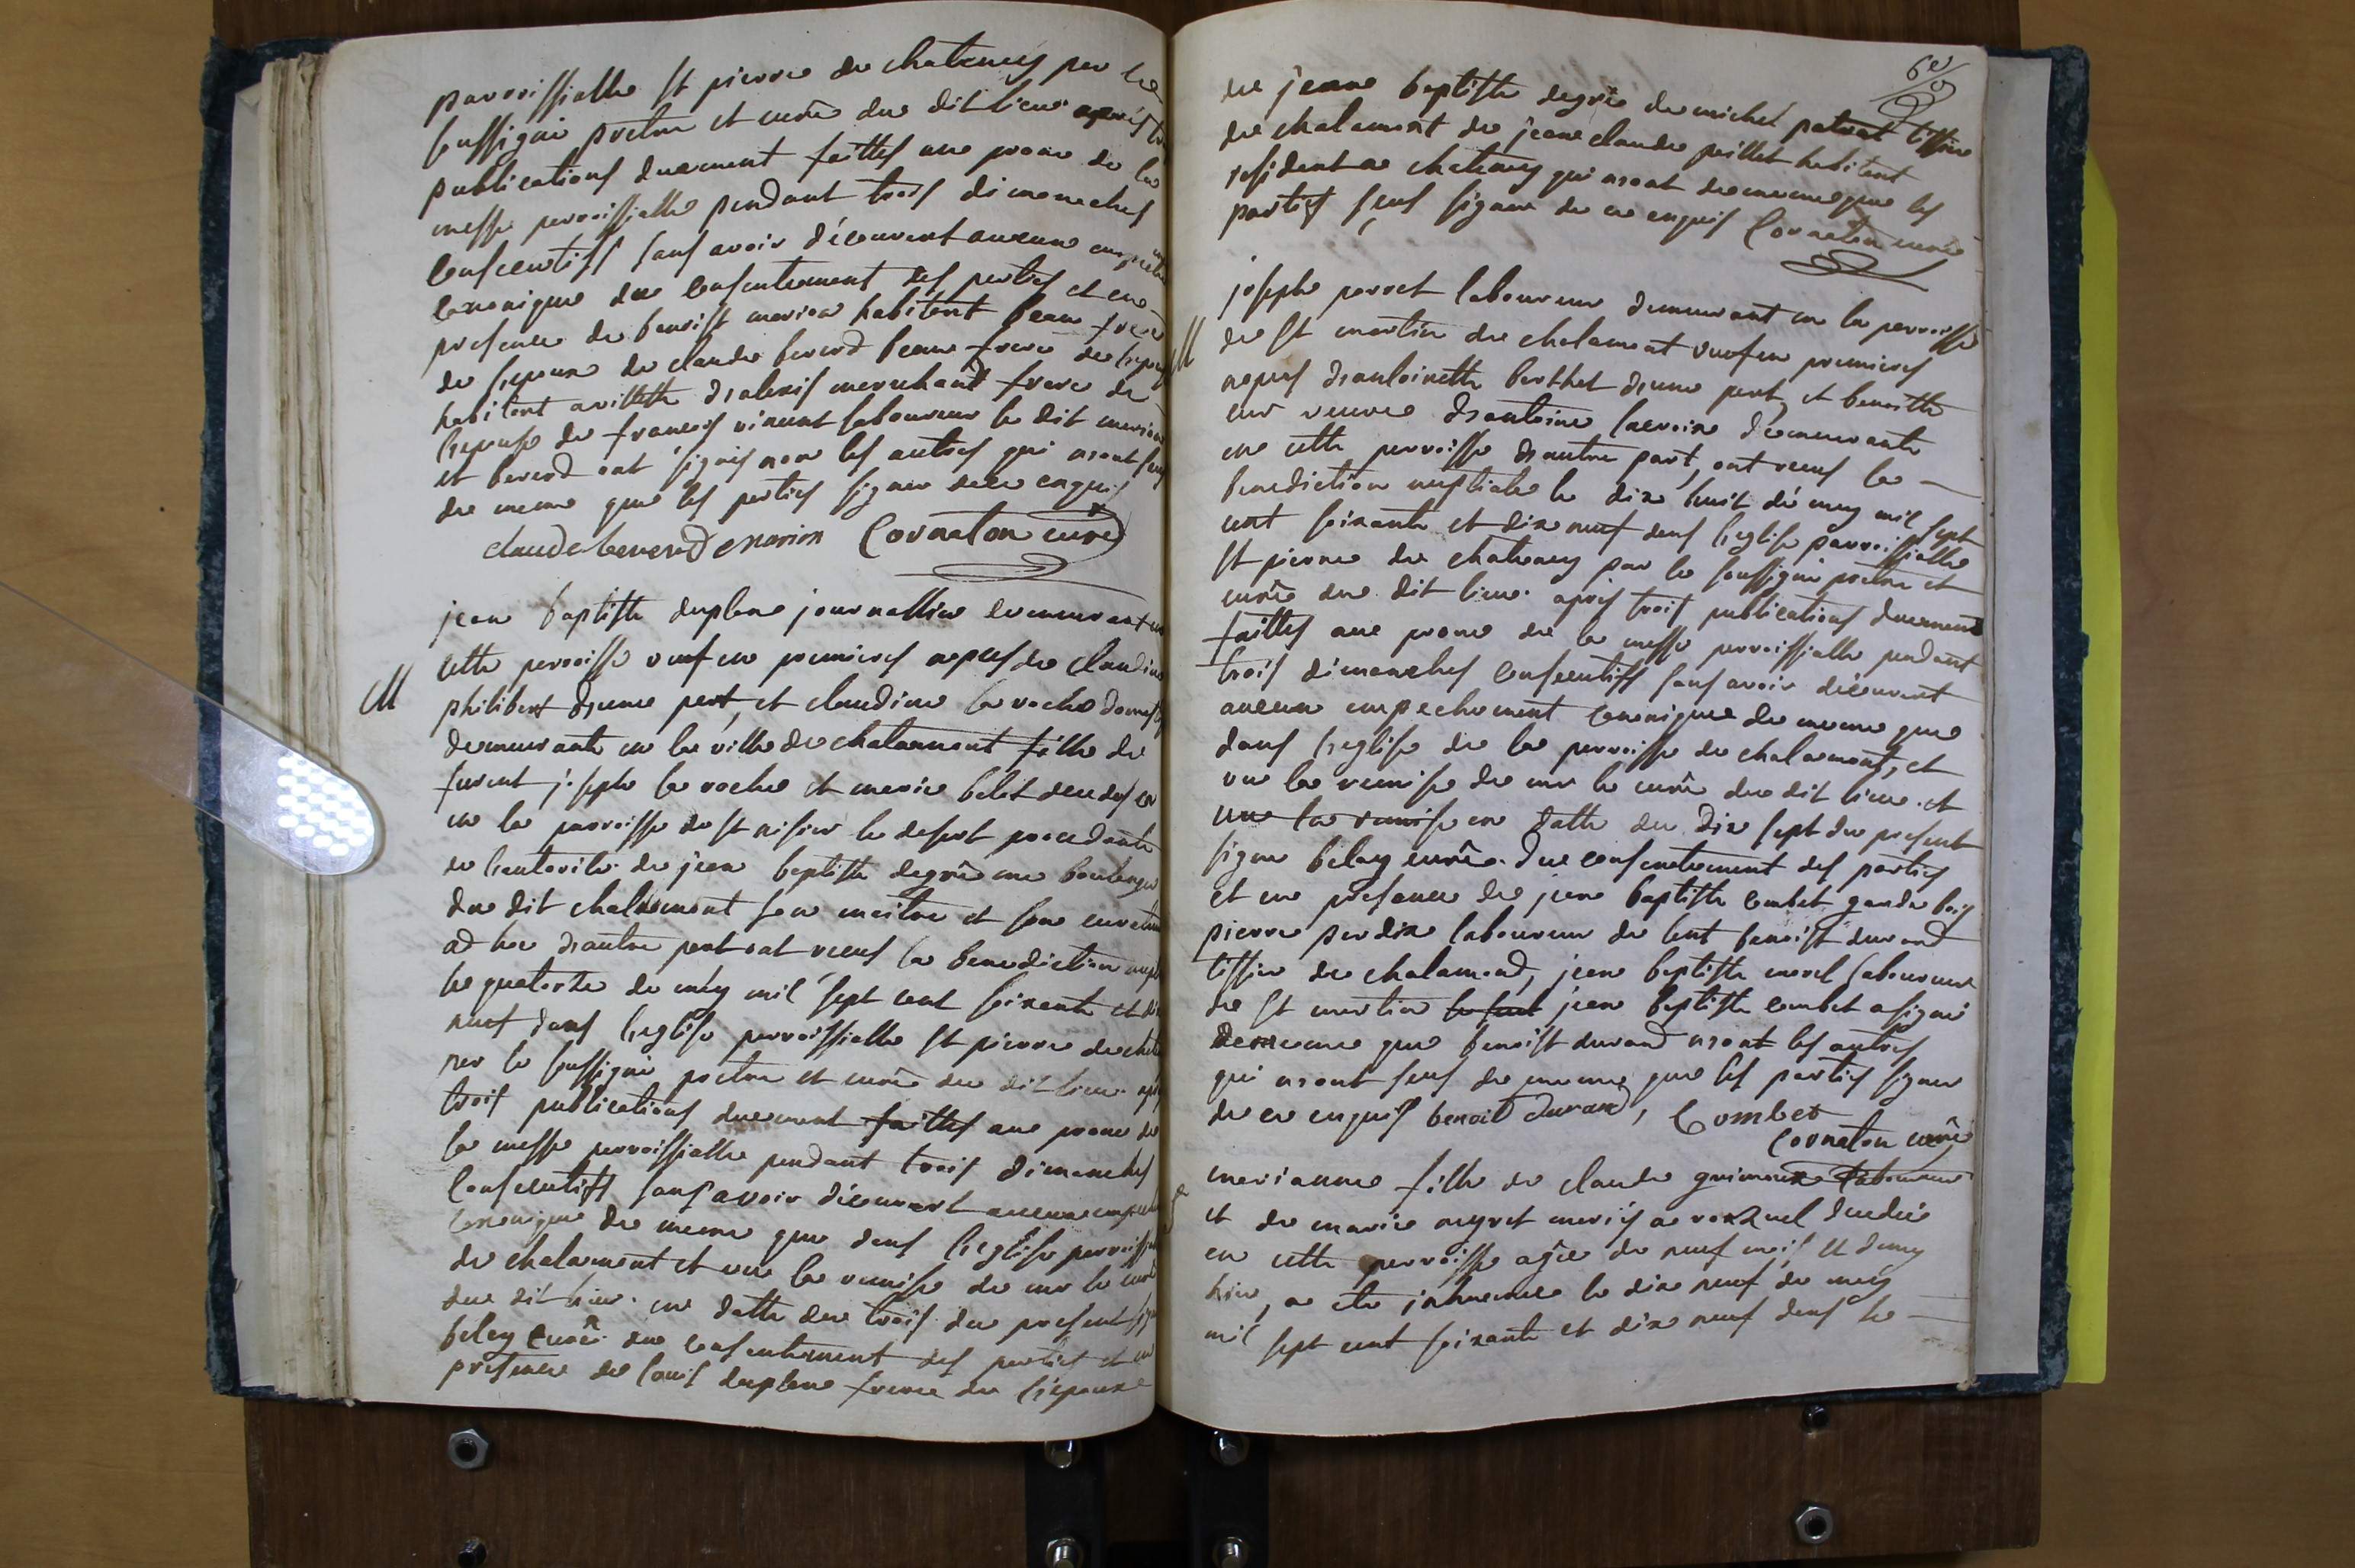 parroissialle st pierre de chatenay par le
soussigné pretre et curé du dit lieu apres trois
publications duement faittes au prone de la
messe parroissialle pendant trois dimanches
consecutifs sans avoir découvert aucun empechem
canonique du consentement des parties et en
presence de benoist marion habitant beau frere
de l'epoux de claude beverd beau frere de l'epoux
habitant a villette d'alexis marchand frere de
l'epouse de francois vincent laboureur le dit marion
et beverd ont signés non les autres qui n'ont sçus
de meme que les parties signer de ce enquis
claude beverd marion Cornaton curé
jean baptiste duplane journallier demeurant en
cette parroisse veuf en premieres nopces de claudine
M
philibert d'une part, et claudine la roche domestiq
demeurante en la ville de chalamont fille de
furent joseph la roche et marie belet decedés
en la parroisse de st nisier le desert procedante
de l'autorité de jean baptiste degrée me boulanger
du dit chalamont son maitre et son curateur
ad hoc d'autre part ont reçus la benediction nupt
le quatorze de may mil sept cent soixante et dix
neuf dans l'eglise parroissialle st pierre de chate
par le soussigné pretre et curé du dit lieu apres
trois publications duement faittes au prone de
la messe parroissialle pendant trois dimanches
consecutifs sans avoir découvert aucun empech
canonique de meme que dans l'eglise parroissi
de chalamont et vu la remise de mr le curé
du dit lieu en datte du trois du present signé
belay curé du consentement des parties et en
presence de louis duplane frere de l'epoux
de jean baptiste degrée de michel patrat tissier
de chalamont de jean claude peillet habitant
resident a chatenay qui n'ont de meme que les
parties sçus signer de ce enquis Cornaton curé
joseph perret laboureur demeurant en la parroisse
M
de st martin de chalamont veuf en premieres
nopces d'antoinette berthet d'une part, et benoitte
veuve d'antoine lacroix demeurante
en cette parroisse d'autre part, ont reçus la
benediction nuptiale le dix huit de may mil sept
cent soixante et dix neuf dans l'eglise parroissialle
st pierre de chatenay par le soussigné pretre et
curé du dit lieu apres trois publications duement
faittes au prone de la messe parroissialle pendant
trois dimanches consecutifs sans avoir découvert
aucun empechement canonique de meme que
dans l'eglise de la parroisse de chalamont, et
vu la remise de mr le curé du dit lieu et
vu la remise en datte du dix sept du present
signé belay curé du consentement des parties
et en presence de jean baptiste combet garde bois
pierre perdix laboureur de lent benoist durand
tissier de chalamond, jean baptiste morel laboureur
de st martin jean baptiste combet a signé
de meme que benoist durand non les autres
qui n'ont sçus de meme que les parties signer
de ce enquis benoit durand, Combet
Cornaton curé
marianne fille de claude guimoux laboureur
et de marie neyret mariés a decedée
en cette parroisse agée de neuf mois et demy
hier, a eté inhumée le dix neuf de may
mil sept cent soixante et dix neuf dans le